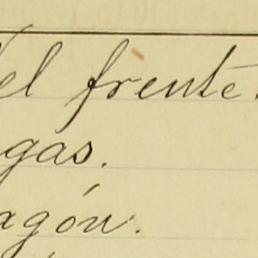 el frente.
gas.
agón.